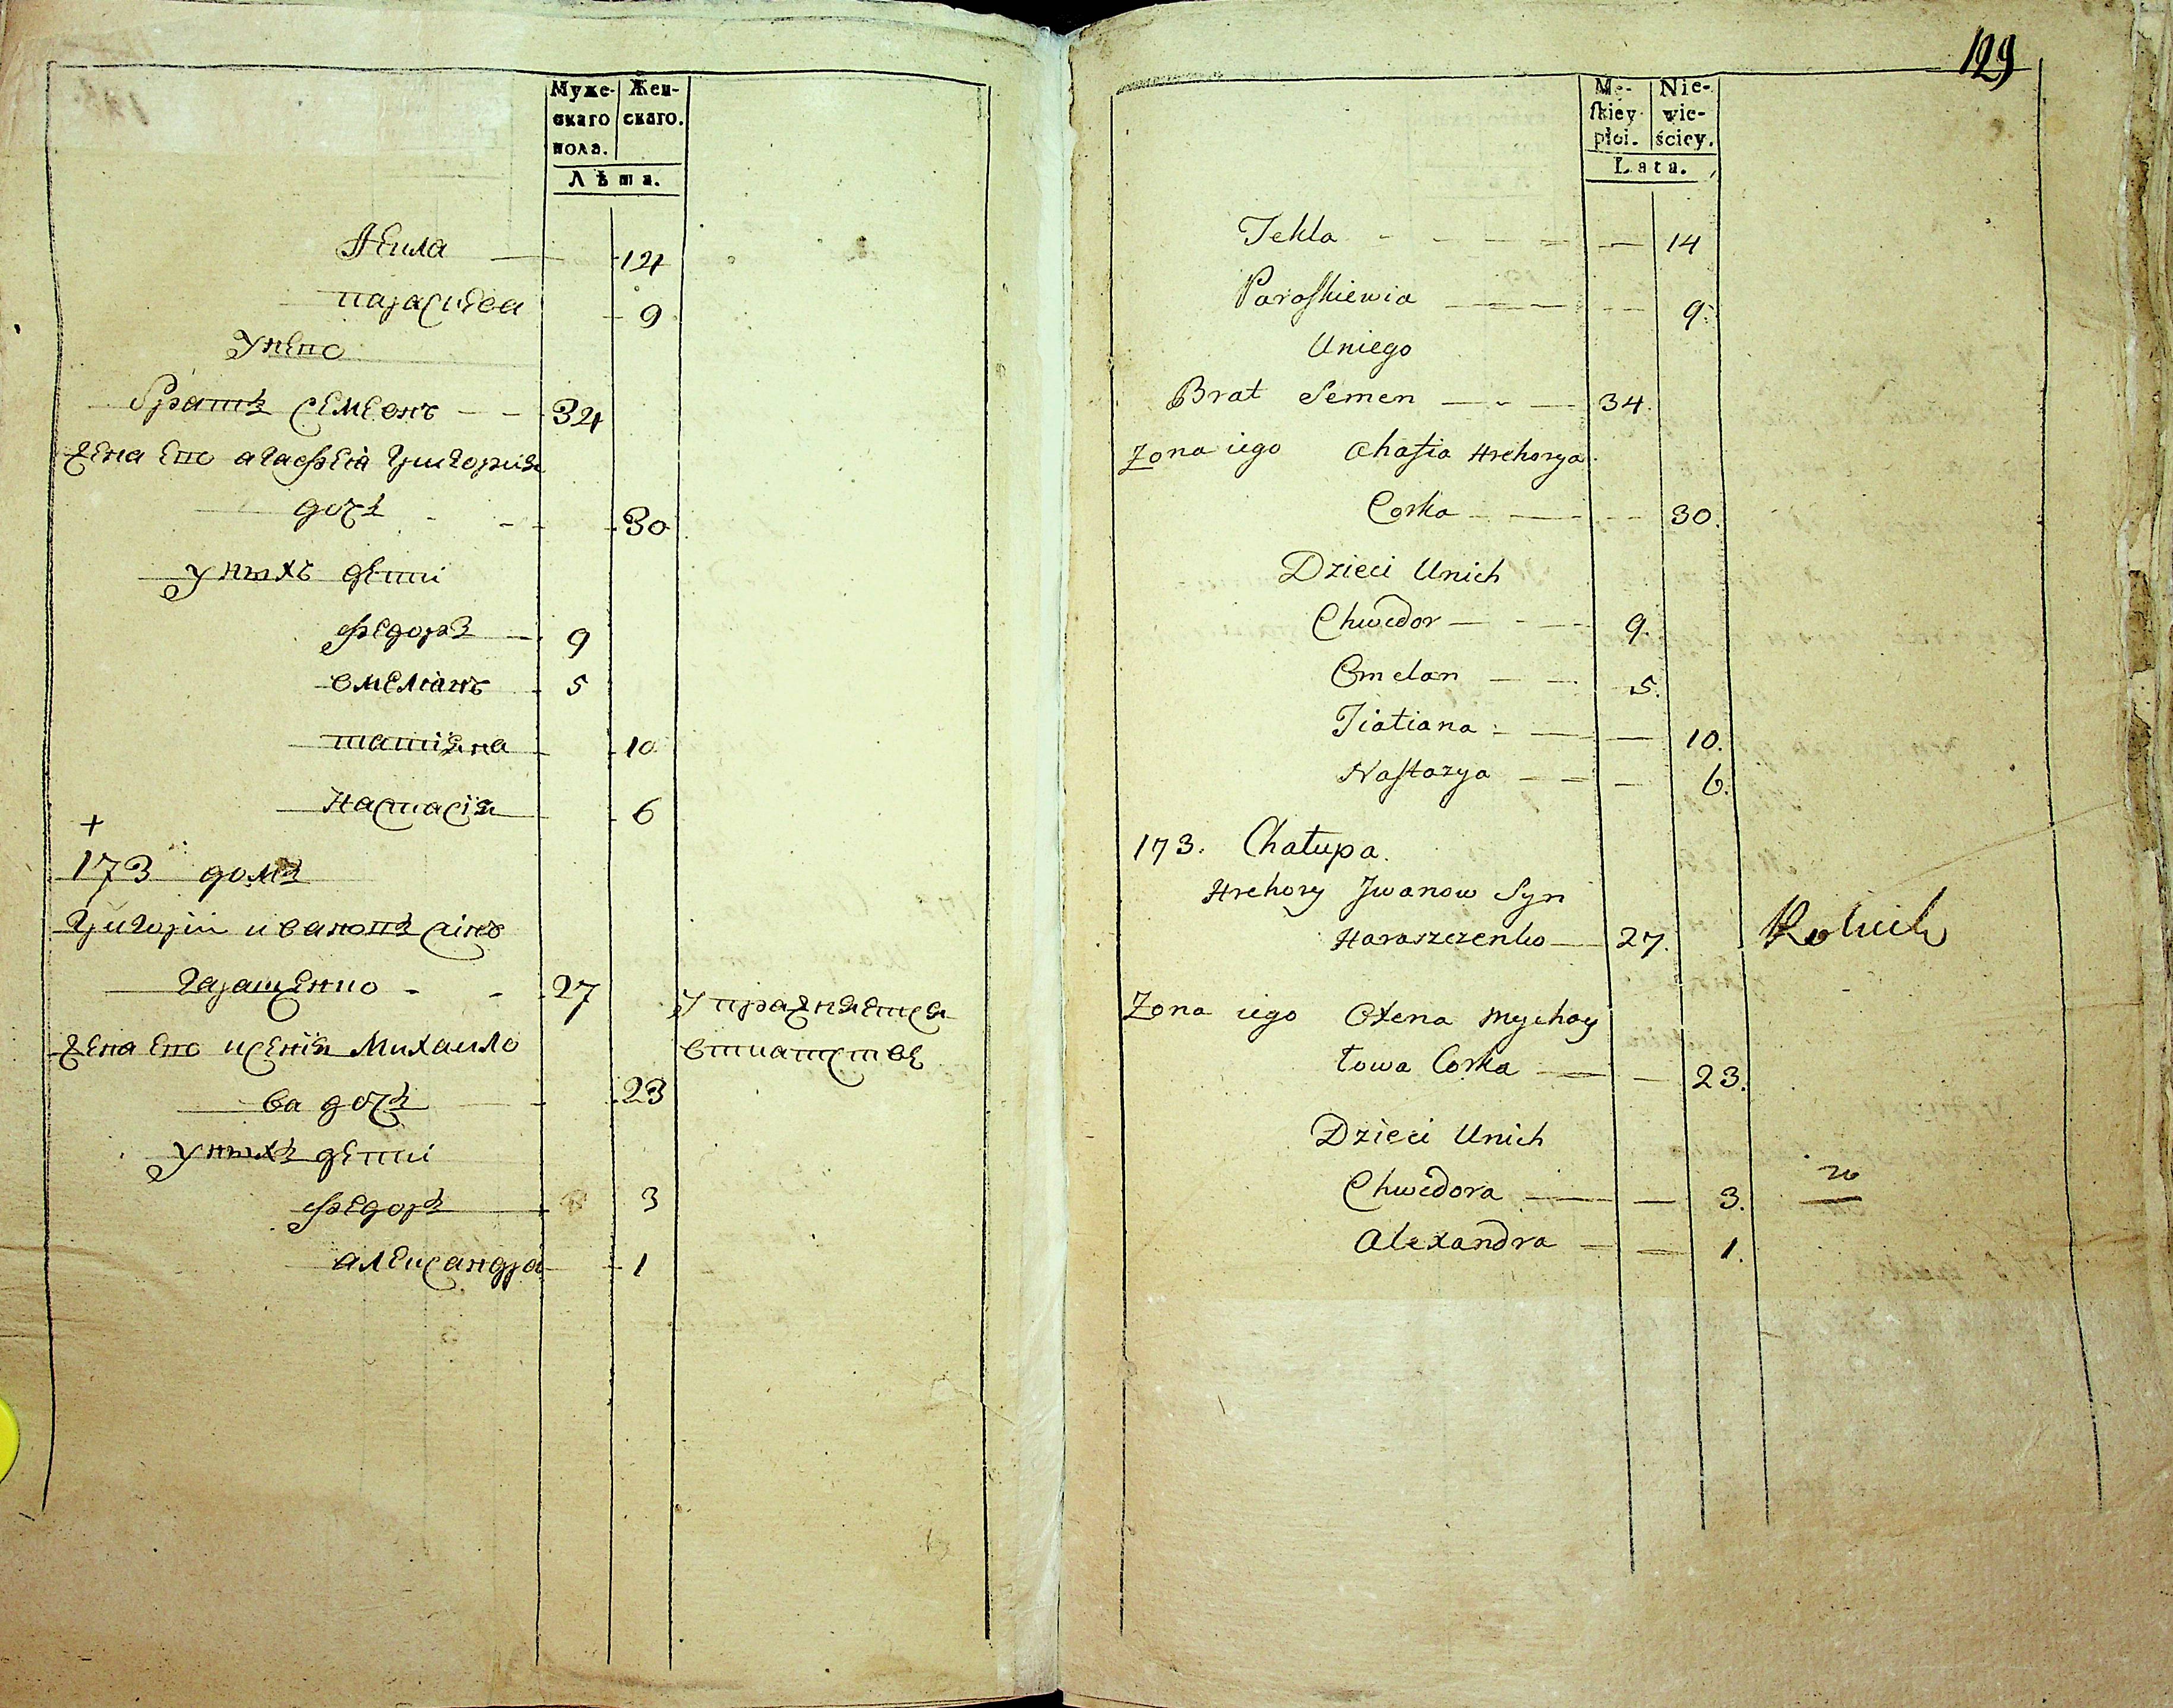 Муже- Жен-
скаго скаго.
пола.
Лѣта.
Текла 14
параскева 9
у него
братъ семенъ 34
жена его агафеиа григория
дочь 30
у ныхъ дети
федоръ 9
омелианъ 5
татияна 10
настасия 6
+
173 домъ
григорий ивановъ синъ
гаращенко 27 упражняется
жена его ксения михаило вткатстве
ва дочь 23
у ныхъ дети
федора 3
александра 1
129
Mę- Nie-
skiey wie-
płci. ściey.
Lata.
Tekla 14
Paraskiewia 9.
Uniego
Brat Semen 34.
Zona iego Ahafia Hrehorya
Corka 30.
Dzieci Unich
Chwedor 9.
Omelan 5.
Tiatiana 10.
Nastazya 6.
173. Chałupa.
Hrehory Jwanow Syn
Haraszczenko 27. Rolnik
Zona iego Oxena Mychay
łowa Corka 23.
Dzieci Unich
Chwedora 3.
Alexandra 1.